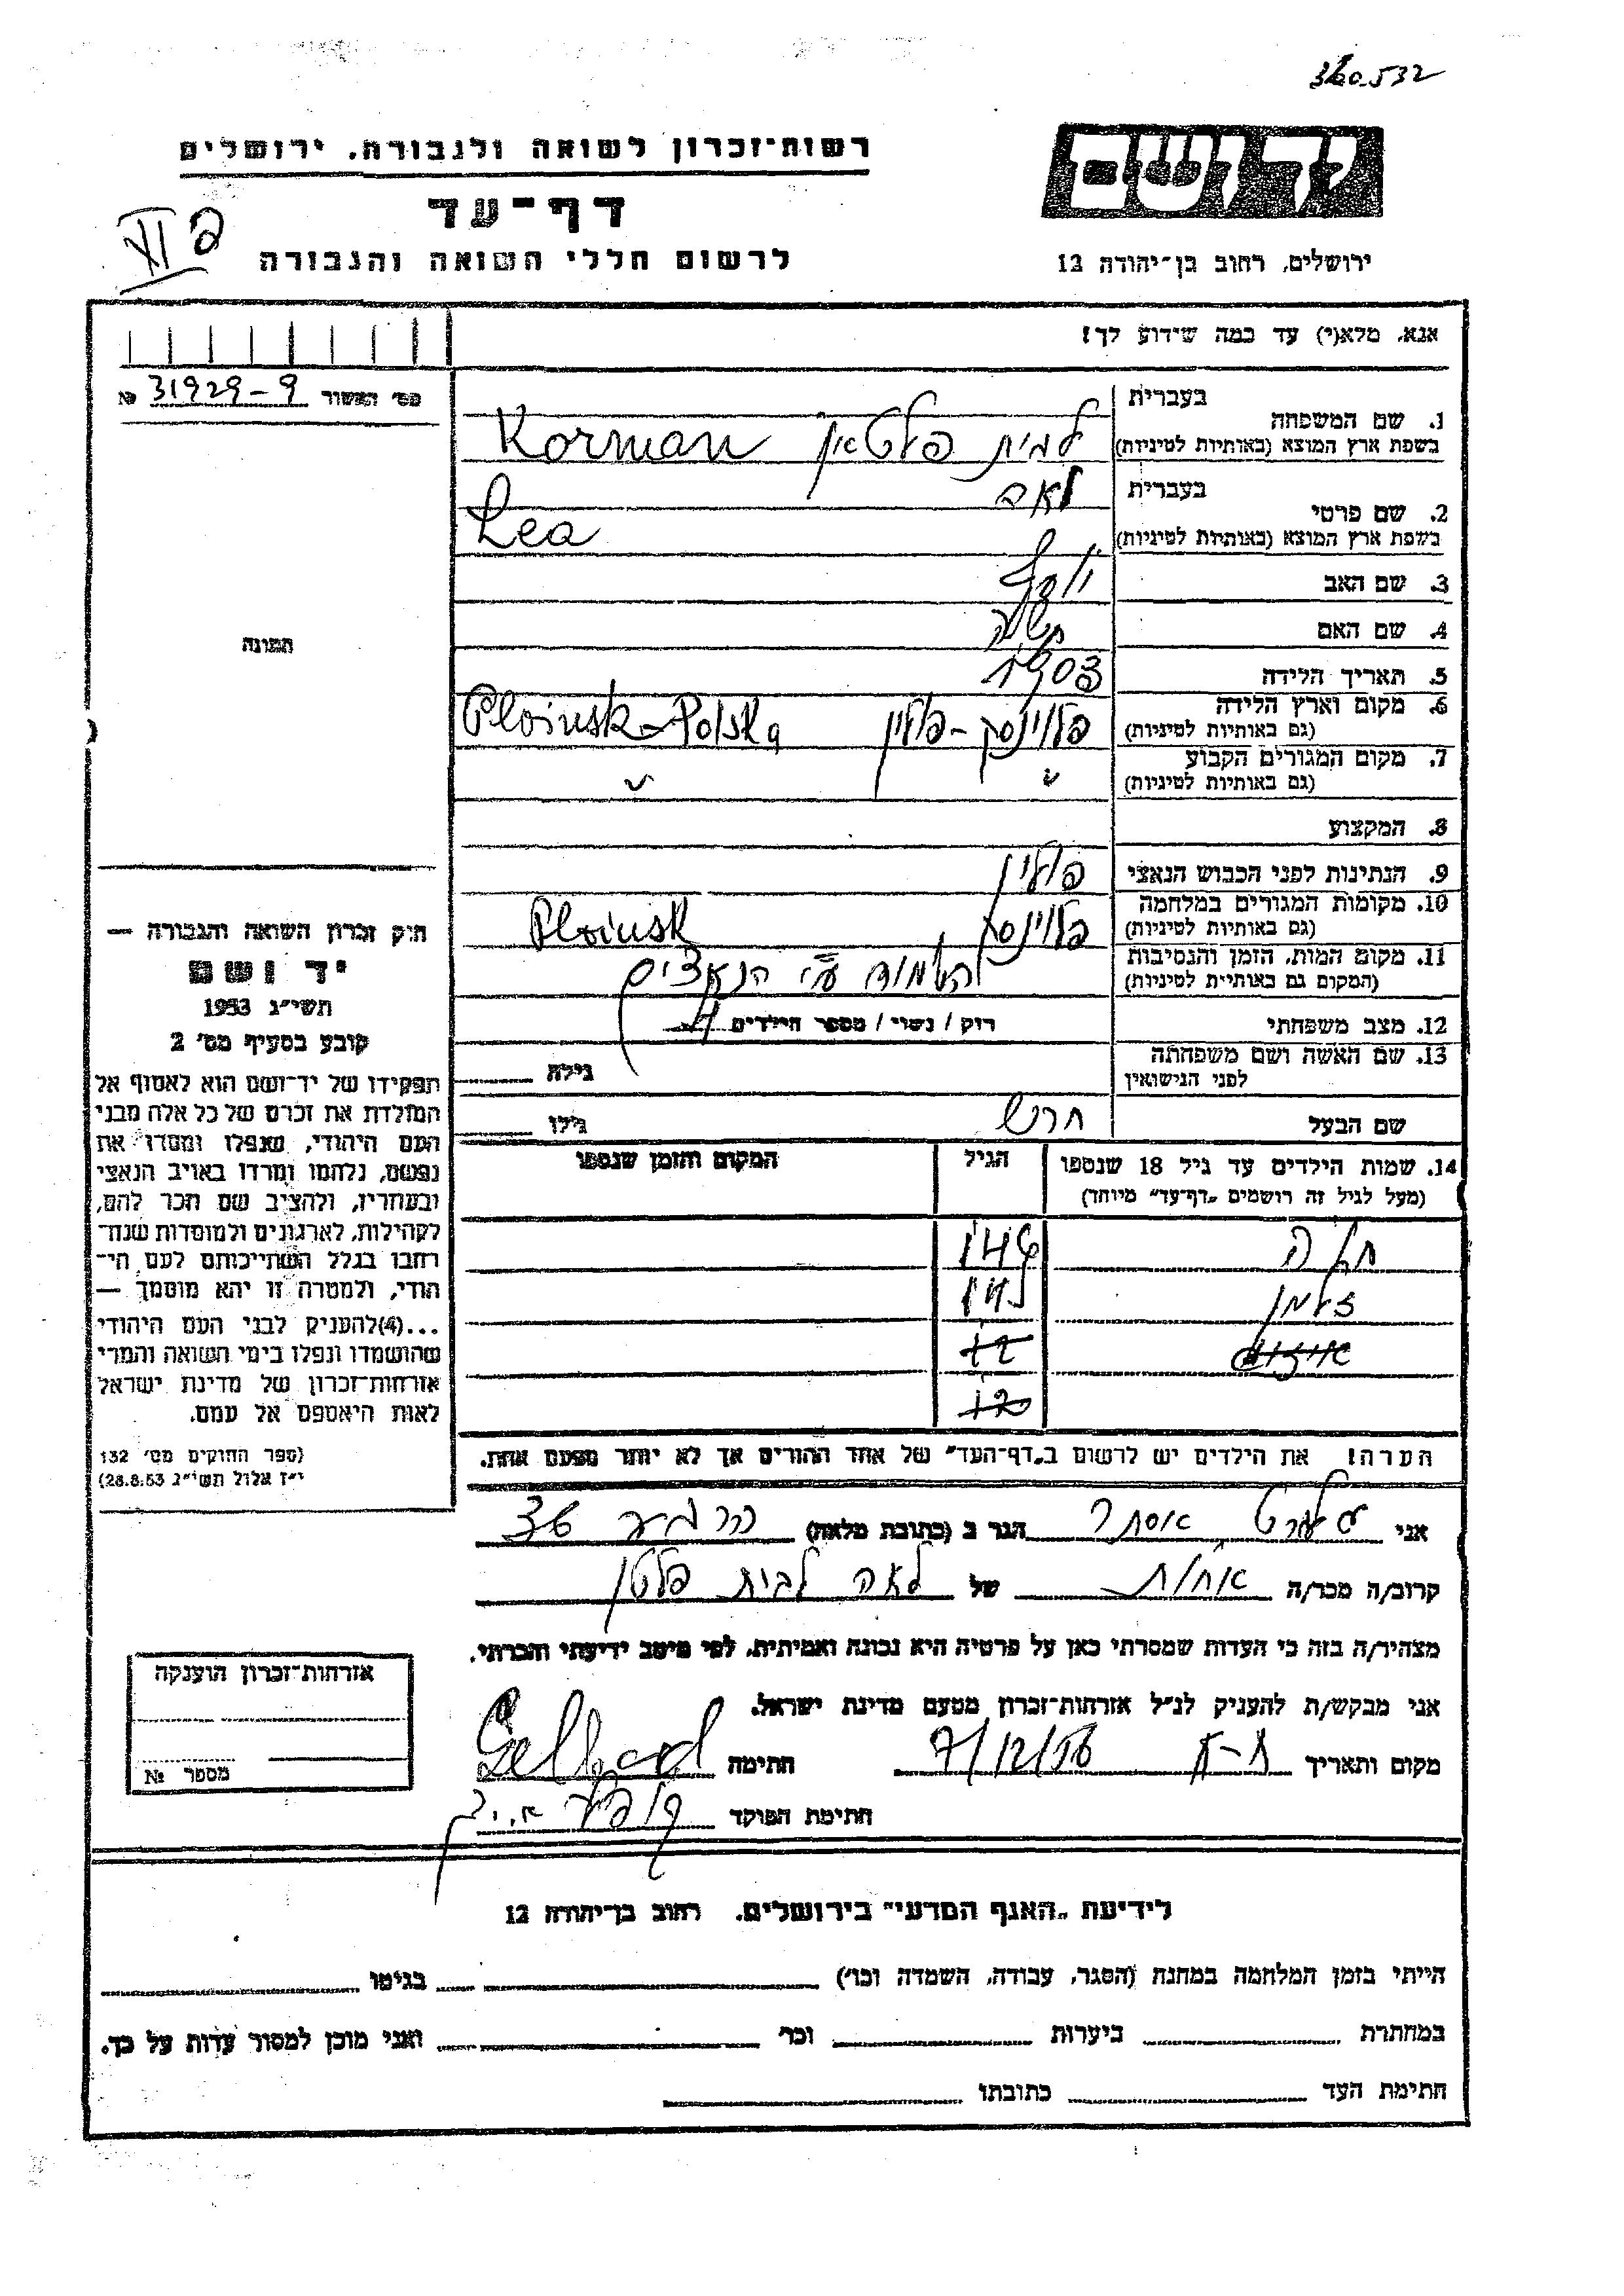 360532
רשות־זכרון לשואה ולגבורה, ירושלים
יד ושם
דף־עד
פ XI
לרשום חללי השואה והגבורה
ירושלים, רחוב בן־יהודה 12
אנא, מלא(י) עד כמה שידוע לך!
מס׳ האשור 31929-9 №
בעברית
1. שם המשפחה
בשפת ארץ המוצא (באותיות לטיניות) לבית Korman
בעברית לאה
2. שם פרטי
בשפת ארץ המוצא (באותיות לטיניות) Lea
3. שם האב יוסף
4. שם האם
תמונה
5. תאריך הלידה 1903
6. מקום וארץ הלידה פלוינסק - פולין Ploinsk - Polska
(גם באותיות לטיניות)
7. מקום המגורים הקבוע " "
(גם באותיות לטיניות)
8. המקצוע
9. הנתינות לפני הכבוש הנאצי פולין
10. מקומות המגורים במלחמה פלוינסק Ploinsk
(גם באותיות לטיניות)
11. מקום המות, הזמן והנסיבות ע״י הנאצים
(המקום גם באותיית לטיניות)
12. מצב משפחתי רוק / נשוי / מספר הילדים
13. שם האשה ושם משפחתה גילה
לפני הנישואין
שם הבעל הרש גילו
חוק זכרון השואה והגבורה —
יד ושם
תשי״ג 1953
קובע בסעיף מס׳ 2
תפקידו של יד־ושם הוא לאסוף אל
המולדת את זכרם של כל אלה מבני
העם היהודי, שנפלו ומסרו את
נפשם, נלחמו ומרדו באויב הנאצי
ובעוזריו, ולהציב שם וזכר להם,
לקהילות, לארגונים ולמוסדות שנח־
רבו בגלל השתייכותם לעם הי־
הודי, ולמטרה זו יהא מוסמך —
...(4)להעניק לבני העם היהודי
שהושמדו ונפלו בימי השואה והמרי
אזרחות־זכרון של מדינת ישראל
לאות היאספם אל עמם.
(ספר החוקים מס׳ 132
י״ז אלול תשי״ג 28.8.53)
14. שמות הילדים עד גיל 18 שנספו הגיל המקום והזמן שנספו
(מעל לגיל זה רושמים „דף־עד״ מיוחד)
זלמן
הערה! את הילדים יש לרשום ב„דף־העד״ של אחד ההורים אך לא יותר מפעם אחת.
אני גלהרט אסתר הגר ב (כתובת מלאה)
קרוב/ה מכר/ה אחות של לאה לבית פלטן
מצהיר/ה בזה כי העדות שמסרתי כאן על פרטיה היא נכונה ואמיתית, לפי מיטב ידיעתי והכרתי.
אני מבקש/ת להעניק לנ״ל אזרחות־זכרון מטעם מדינת ישראל.
מקום ותאריך ת-א 7/12/56 חתימה Gelhard
חתימת הפוקד
אזרחות־זכרון הוענקה
מספר №
לידיעת „האגף המדעי״ בירושלים, רחוב בן־יהודה 12
הייתי בזמן המלחמה במחנה (הסגר, עבודה, השמדה וכו׳) בגיטו
במחתרת ביערות וכו׳ ואני מוכן למסור עדות על כך.
חתימת העד כתובתו